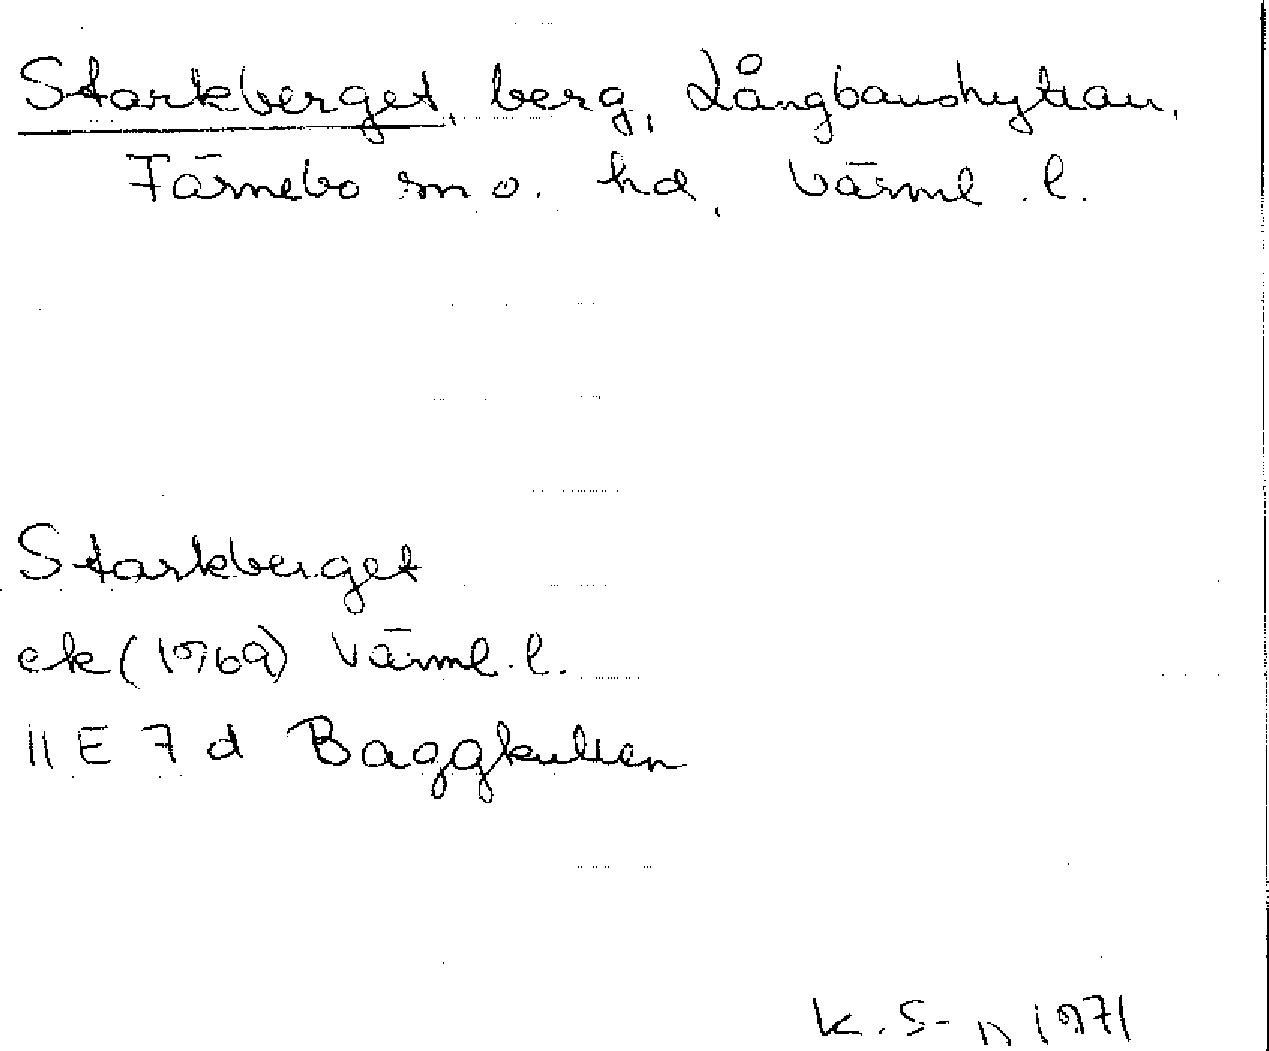 Starkberget, berg, Långbanshyttan,
Färnebo sn o. hd, Värml. l.
Starkberget
ek (1969) Värml. l.
11 E 7 d Baggkullen
K. S-n 1971